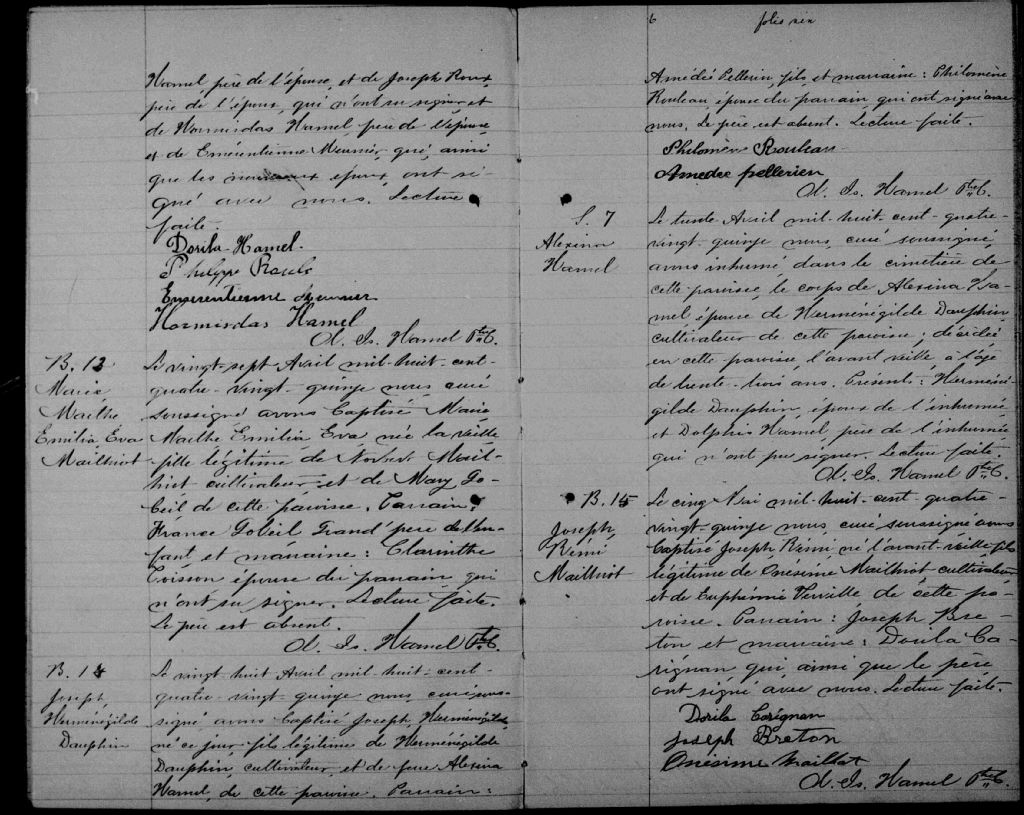 Hamel, père de l'épouse, et de Joseph Roux,
père de l'époux, qui n'ont su signer et
de Hormisdas Hamel père de l'épouse,
et de Emérentienne Meunier, qui, ainsi
que les nouveaux époux, ont si-
gné avec nous. Lecture
faite
Dorila Hamel
Philippe
Emerentienne Meunier
Hormisdas Hamel
O. Is. Hamel Ptre C.
B. 13
Marie,
Marthe
Emilia Eva
Mailhiot
Le vingt-sept Avril mil-huit-cent-
quatre-vingt-quinze nous curé
soussigné avons baptisé Marie
Marthe Emilia Eva née la veille
fille légitime de Mail-
hiot cultivateur et de Mary Go-
beil de cette paroisse. Parrain:
France Gobeil Grand'père de l'en-
fant et marraine: Clarinthe
Poisson épouse du parrain qui
n'ont su signer. Lecture faite.
Le père est absent.
O. Is. Hamel Ptre C.
B. 14
Joseph,
Herménégilde
Dauphin
Le vingt huit Avril mil-huit-cent-
quatre-vingt-quinze nous curé sous-
signé avons baptisé Joseph, Herménégilde
né ce jour, fils légitime de Herménégilde
Dauphin, cultivateur, et de feue Alexina
Hamel, de cette paroisse. Parrain:
6 folio six
Amédée Pellerin, fils, et marraine: Philomène
Rouleau, épouse du parrain, qui ont signé avec
nous. Le père est absent. Lecture faite.
Philomène Rouleau
Amedee pellerien
O. Is. Hamel Ptre C.
S. 7
Alexina
Hamel
Le trente Avril mil-huit-cent-quatre-
vingt-quinze nous, curé soussigné,
avons inhumé, dans le cimetière de
cette paroisse, le corps de Alexina Ha-
mel épouse de Herménégilde Dauphin,
cultivateur de cette paroisse, décédée
en cette paroisse, l'avant veille à l'âge
de trente-trois ans. Présents: Herméné-
gilde Dauphin, époux de l'inhumée
et Dolphis Hamel, père de l'inhumée
qui n'ont pu signer. Lecture faite.
O. Is. Hamel Ptre C.
B. 15
Joseph,
Rémi
Mailhiot
Le cinq Mai mil-huit-cent-quatre-
vingt-quinze nous, curé soussigné avons
baptisé Joseph, Rémi né l'avant-veille, fils
légitime de Onésime Mailhiot cultivateur
et de Euphémie Verville de cette pa-
roisse. Parrain: Joseph Bre-
ton et marraine: Dorila Ca-
rignan qui, ainsi que le père
ont signé avec nous. Lecture faite.
Dorila Carignan
Joseph Breton
Onésime Maillot
O. Is. Hamel Ptre C.